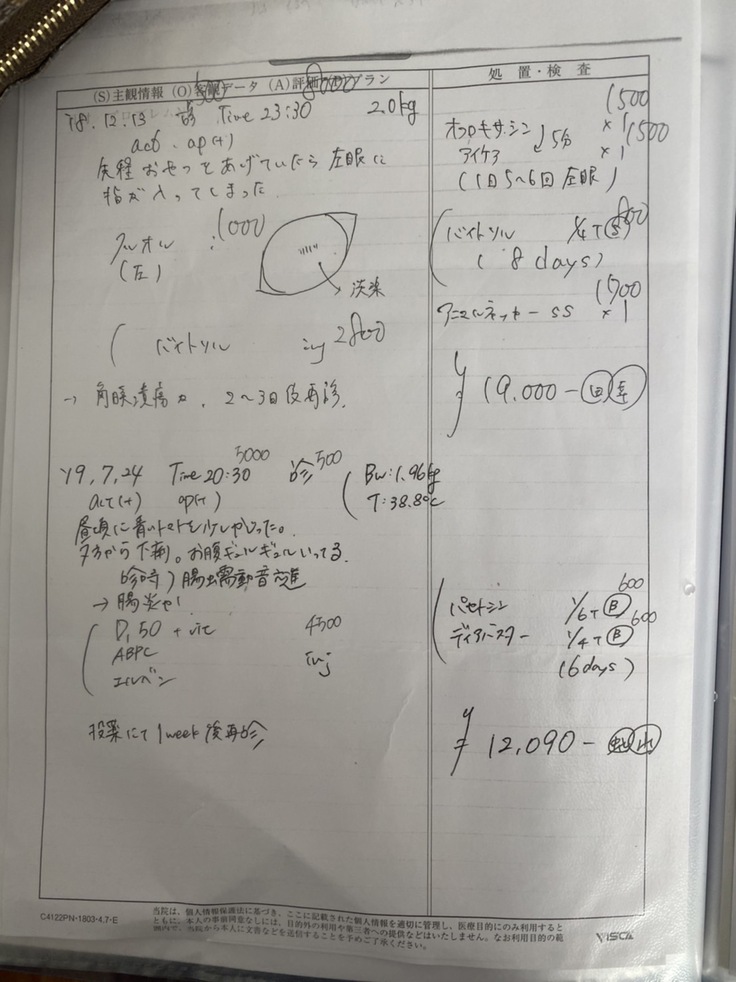 (S)主観情報 (O)客観データ (A)評価 (P)プラン
処置・検査
'18.12.13 Time 23:30 2.0kg
act. ap(+)
矢経おやつをあげていたら左眼に
指が入ってしまった
フルオル : 1000
(左)
淡染
( バイトリル inj 2800
→ 角膜潰瘍か、2~3日後再診.
1500
オフロキサシン ×1
5分 1500
アイケア ×1
(1日5~6回 左眼)
800
バイトリル 1/4T
(8 days)
1700
アニマルネッカー SS ×1
¥19,000-
'19,7,24 Time 20:30 5000 診 500
act(+) ap(+)
BW:1.96kg
T:38.8℃
昼頃に青いトマトを少しかじった。
夕方から下痢。お腹ギュルギュルいってる
診時)腸蠕動音亢進
→ 腸炎か!
D,50 + vic 4500
ABPC inj
エルベン
600
パセトシン 1/6T B
600
ディアバスター 1/4T B
(6days)
投薬にて 1week後再診
¥12,090-
C4122PN-1803-4.7-E
当院は、個人情報保護法に基づき、ここに記載された個人情報を適切に管理し、医療目的にのみ利用すると
ともに、本人の事前同意なしには、目的外の利用や第三者への提供などはいたしません。なお利用目的の範
囲内で、当院から本人に文書などを送信することを予めご了承ください。
VISCA